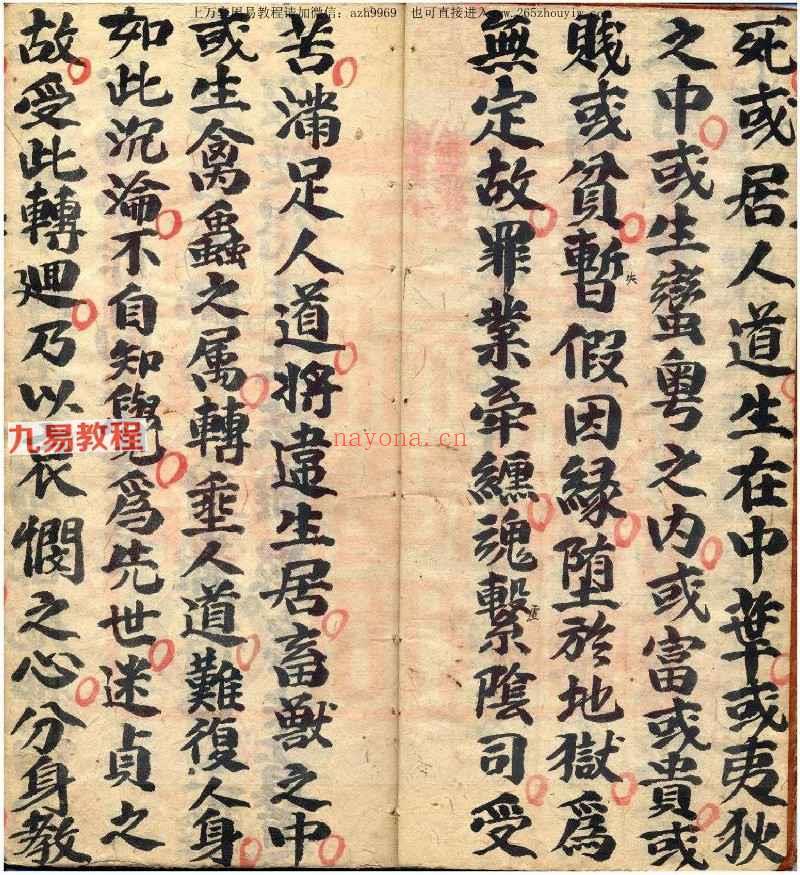 上万套周易教程请加微信：azh9969 也可直接进入www.265zhouyiw.com
死或居人道生在中華或夷狄
之中或生蠻粵之内或富或貴或
賎或貧暫假因縁堕於地獄爲
無定故罪業牵纏魂繫隂司受
苦滿足人道將違生居畜獸之中
或生禽蟲之属轉乖人道難復人身
如此沉淪不自知覺爲先世迷貞之
故受此轉廻乃以哀憫之心分身教
九易教程
nayona.cn